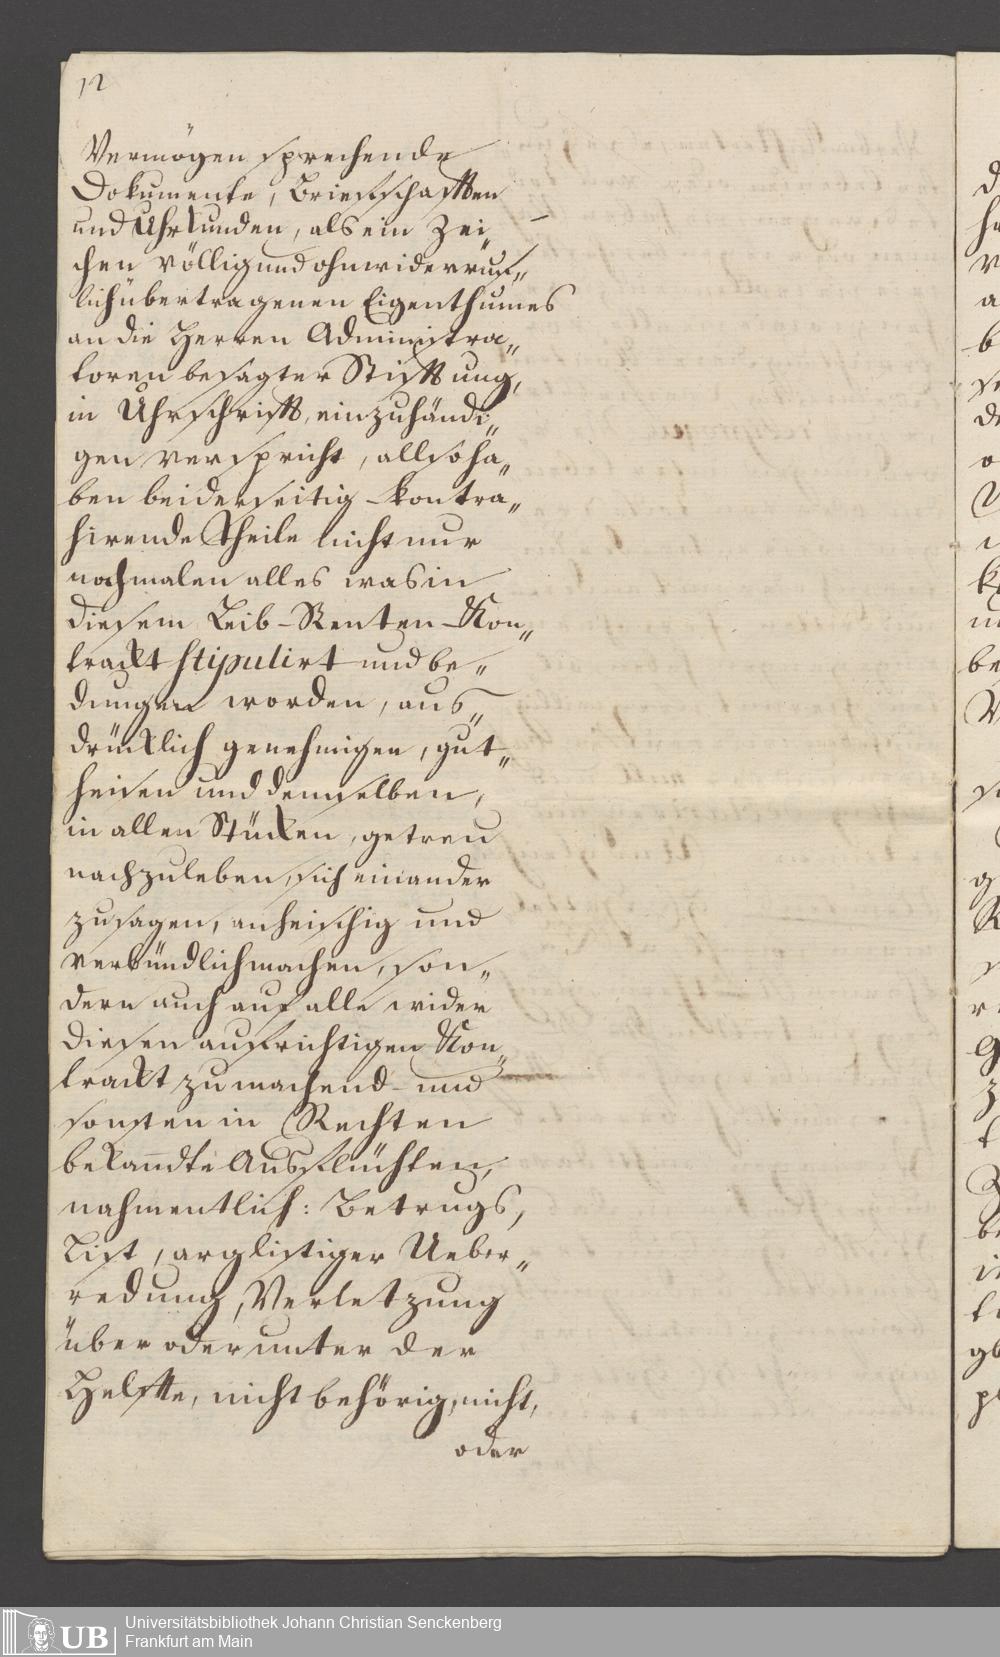 12
Vermögen sprechende
Dokumente, Briefschafften
und Uhrkunden, als ein Zei-
chen völlig und ohnwiderruf„
lich übertragenen Eigenthumes
an die Herren Administra„
toren besagter Stifftung,
in Uhrschrifft, einzuhändi„
gen verspricht, allso ha„
ben beiderseitig-kontra„
hirende Theile nicht nur
nochmalen alles was in
diesem Leib-Renten-Kon„
trackt stipulirt und be„
dungen worden, aus„
drücklich genehmigen, gut„
heisen und demselben,
in allen Stücken, getreu
nachzuleben, sich einander
zusagen, anheischig und
verbündlich machen, son„
dern auch auf alle wider
diesen aufrichtigen Kon„
trackt zu machend- und
sonsten in Rechten
bekandte Ausflüchten,
nahmentlich: Betrugs,
List, arglistiger Ueber„
redung, Verletzung
über oder unter der
Helfte, nicht behörig, nicht,
oder
UB
Universitätsbibliothek Johann Christian Senckenberg
Frankfurt am Main